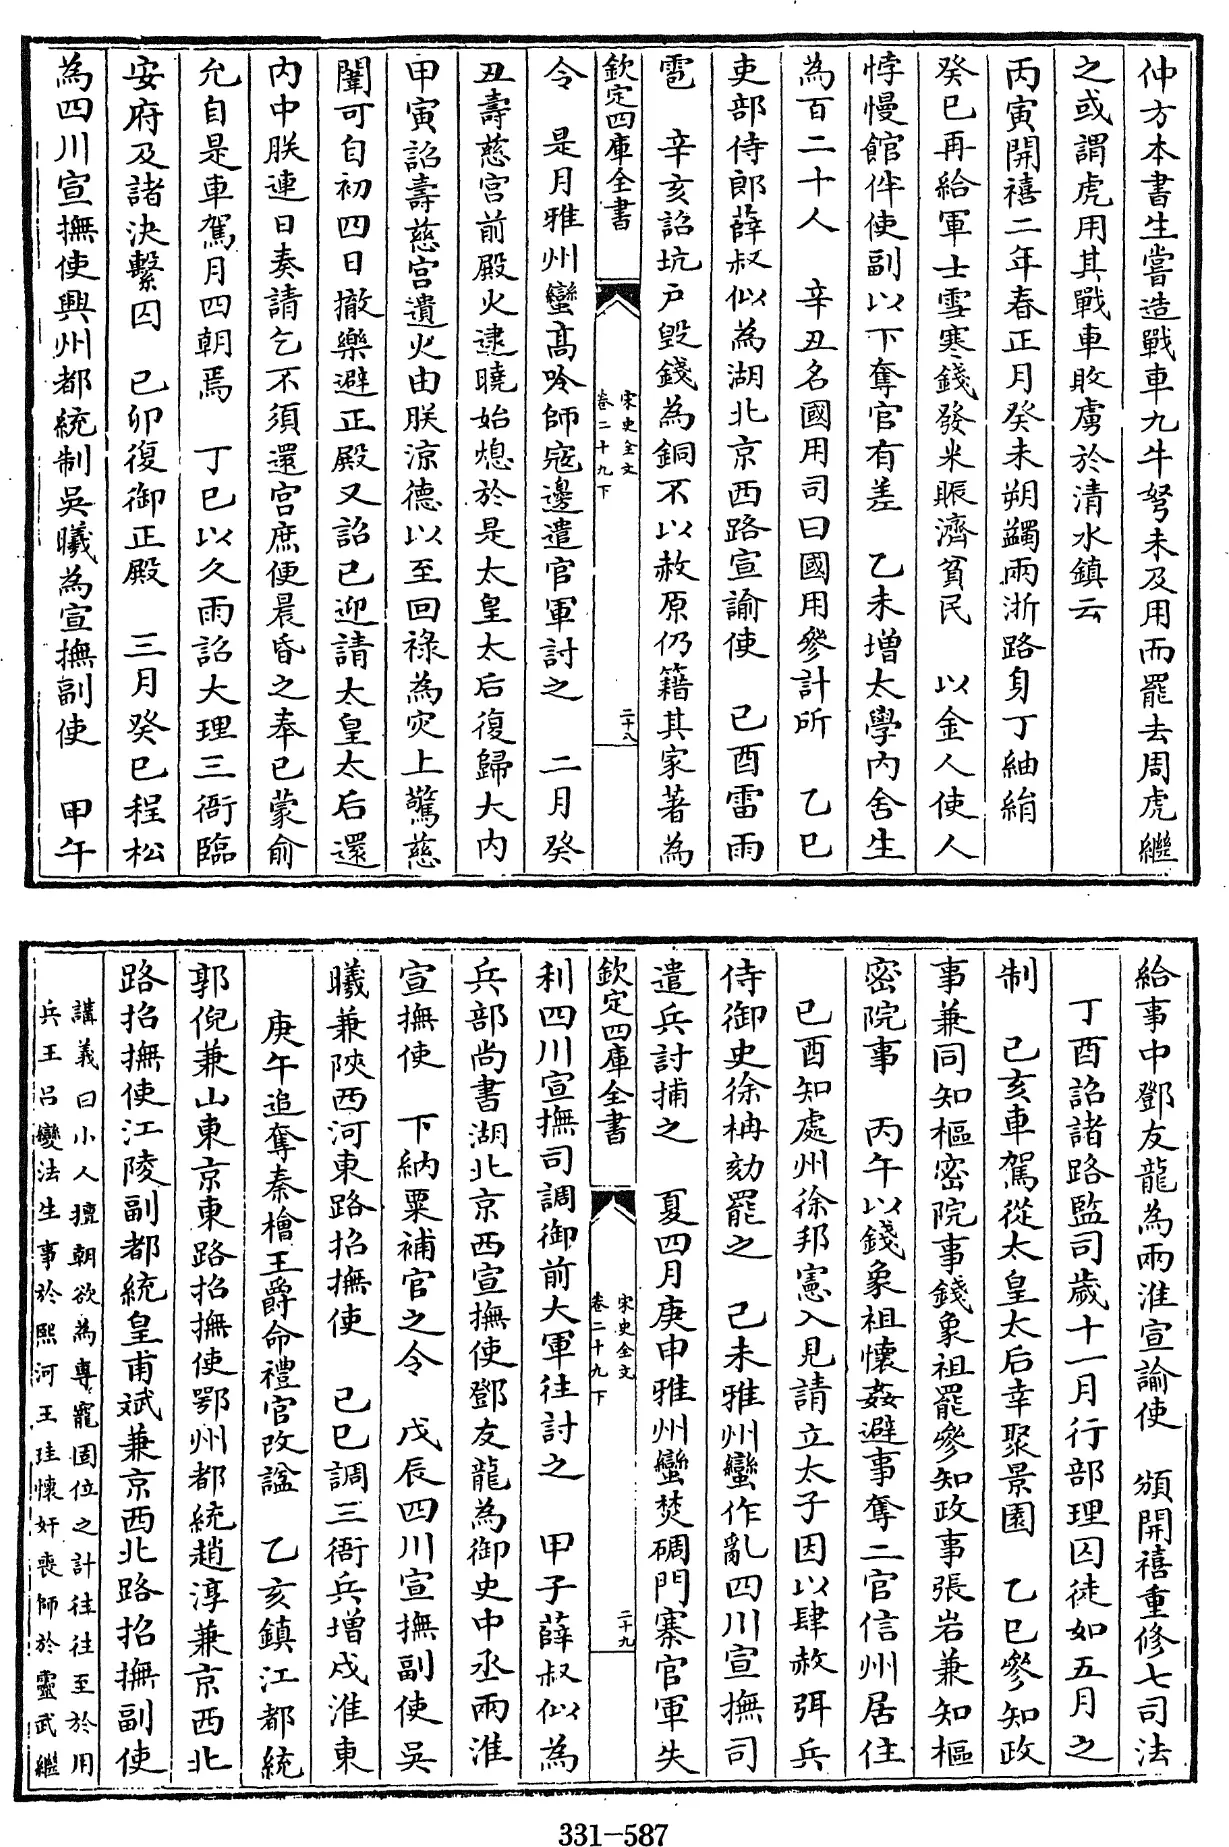 仲方本書生嘗造戰車九牛弩未及用而罷去周虎繼
之或謂虎用其戰車敗虜於清水鎮云
丙寅開禧二年春正月癸未朔蠲兩浙路身丁紬絹
癸巳再給軍士雪寒錢發米賑濟貧民　以金人使人
悖慢館伴使副以下奪官有差　乙未增太學內舍生
為百二十人　辛丑名國用司曰國用參計所　乙巳
吏部侍郎薛叔似為湖北京西路宣諭使　己酉雷雨
雹　辛亥詔坑戶毀錢為銅不以赦原仍籍其家著為
欽定四庫全書
宋史全文
卷二十九下
二十八
令　是月雅州蠻高吟師寇邊遣官軍討之　二月癸
丑壽慈宮前殿火逮曉始熄於是太皇太后復歸大內
甲寅詔壽慈宮遺火由朕涼德以至回祿為災上驚慈
闈可自初四日撤樂避正殿又詔已迎請太皇太后還
內中朕連日奏請乞不須還宮庶便晨昏之奉已蒙俞
允自是車駕月四朝焉　丁巳以久雨詔大理三衙臨
安府及諸決繫囚　己卯復御正殿　三月癸巳程松
為四川宣撫使興州都統制吳曦為宣撫副使　甲午
給事中鄧友龍為兩淮宣諭使　頒開禧重修七司法
丁酉詔諸路監司歲十一月行部理囚徒如五月之
制　己亥車駕從太皇太后幸聚景園　乙巳參知政
事兼同知樞密院事錢象祖罷參知政事張岩兼知樞
密院事　丙午以錢象祖懷姦避事奪二官信州居住
己酉知處州徐邦憲入見請立太子因以肆赦弭兵
侍御史徐柟劾罷之　己未雅州蠻作亂四川宣撫司
遣兵討捕之　夏四月庚申雅州蠻焚碉門寨官軍失
欽定四庫全書
宋史全文
卷二十九下
二十九
利四川宣撫司調御前大軍往討之　甲子薛叔似為
兵部尚書湖北京西宣撫使鄧友龍為御史中丞兩淮
宣撫使　下納粟補官之令　戊辰四川宣撫副使吳
曦兼陝西河東路招撫使　己巳調三衙兵增戍淮東
庚午追奪秦檜王爵命禮官改諡　乙亥鎮江都統
郭倪兼山東京東路招撫使鄂州都統趙淳兼京西北
路招撫使江陵副都統皇甫斌兼京西北路招撫副使
講義曰小人擅朝欲為專寵固位之計往往至於用
兵王呂變法生事於熙河王珪懷奸喪師於靈武繼
331-587